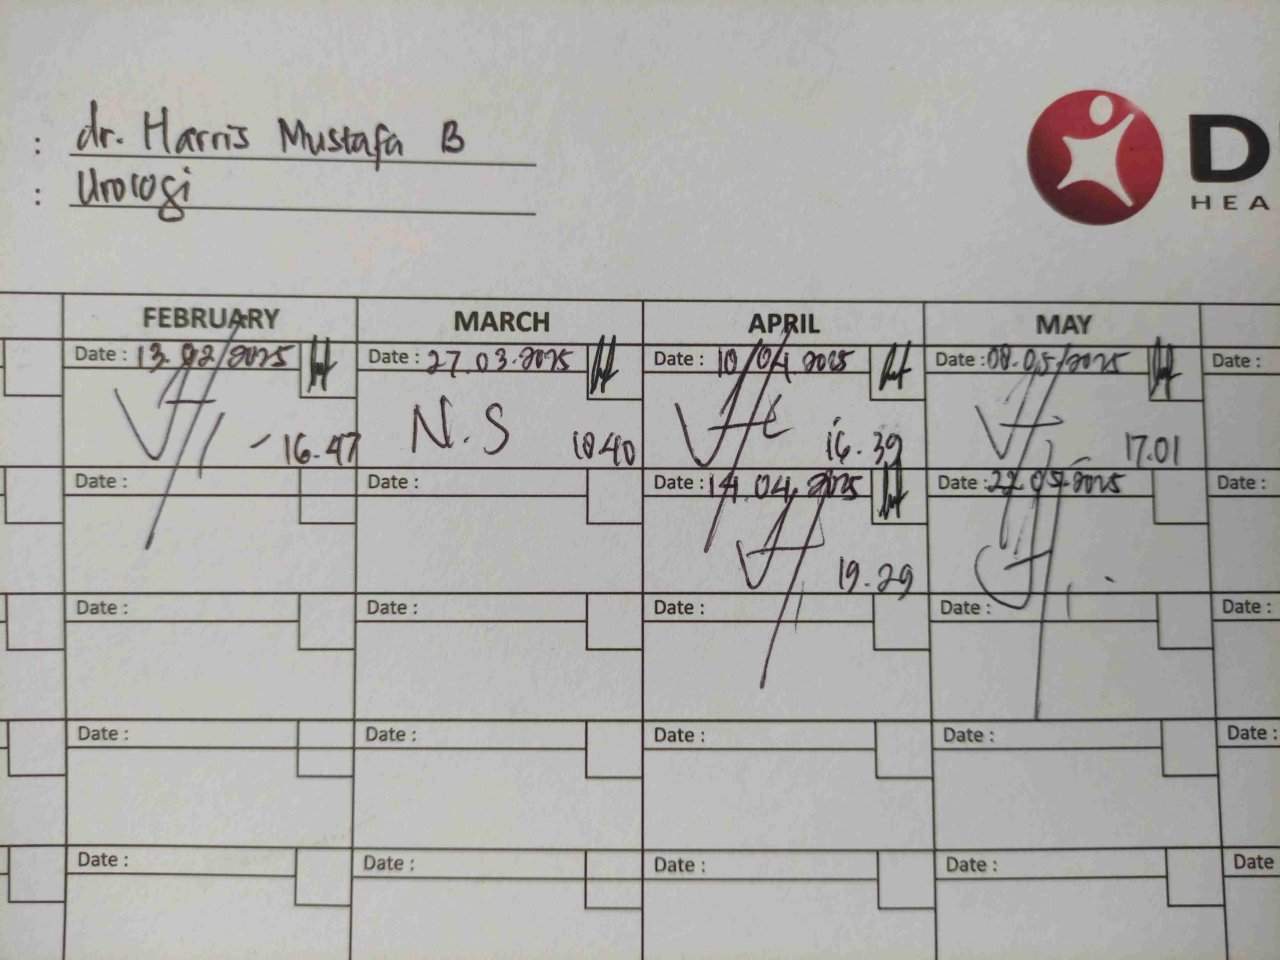 : dr. Harris Mustafa B
: Urologi
D
HEA
FEBRUARY MARCH APRIL MAY
Date : 13.02/2025 Date : 27.03.2025 Date : 10/04.2025 Date : 08.05/2025 Date :
16.47 N.S 18.40 16.39 17.01
Date : Date : Date : 14.04.2025 Date : 22.05.2025 Date :
19.29
Date : Date : Date : Date : Date :
Date : Date : Date : Date : Date :
Date : Date : Date : Date : Date